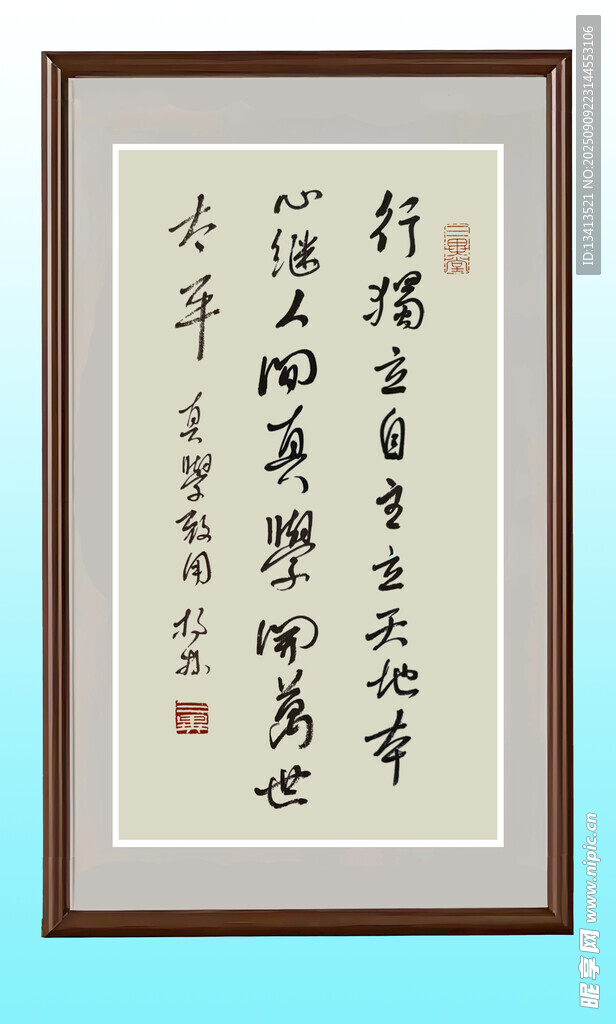 行獨立自主立天地本
心继人间真學開萬世
太平
真學致用
三畏堂
ID:13413521 NO:20250909223144553106
昵享网 www.nipic.cn